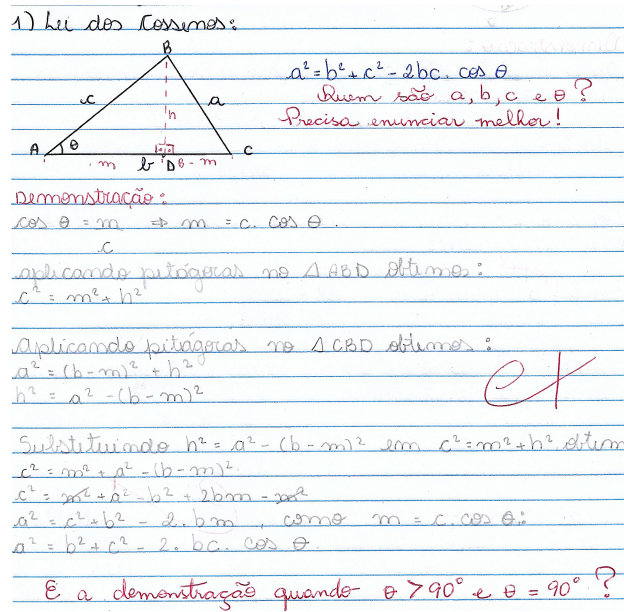 1) Lei dos Cossenos:
B
a² = b² + c² - 2bc. cos θ
c
a
h
Quem são a, b, c e θ?
Precisa enunciar melhor!
A θ C
m b D b - m
Demonstração:
cos θ = m ⇒ m = c. cos θ.
c
aplicando pitágoras no △ ABD obtemos:
c² = m² + h²
Aplicando pitágoras no △ CBD obtemos:
a² = (b-m)² + h²
h² = a² - (b-m)²
Substituindo h² = a² - (b-m)² em c² = m² + h² obtem
c² = m² + a² - (b-m)²
c² = m² + a² - b² + 2bm - m²
a² = c² + b² - 2. bm, como m = c. cos θ:
a² = b² + c² - 2. bc. cos θ.
E a demonstração quando θ > 90° e θ = 90°?